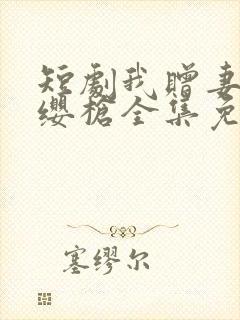 短劇我贈妻
纓槍全集免
塞缪尔